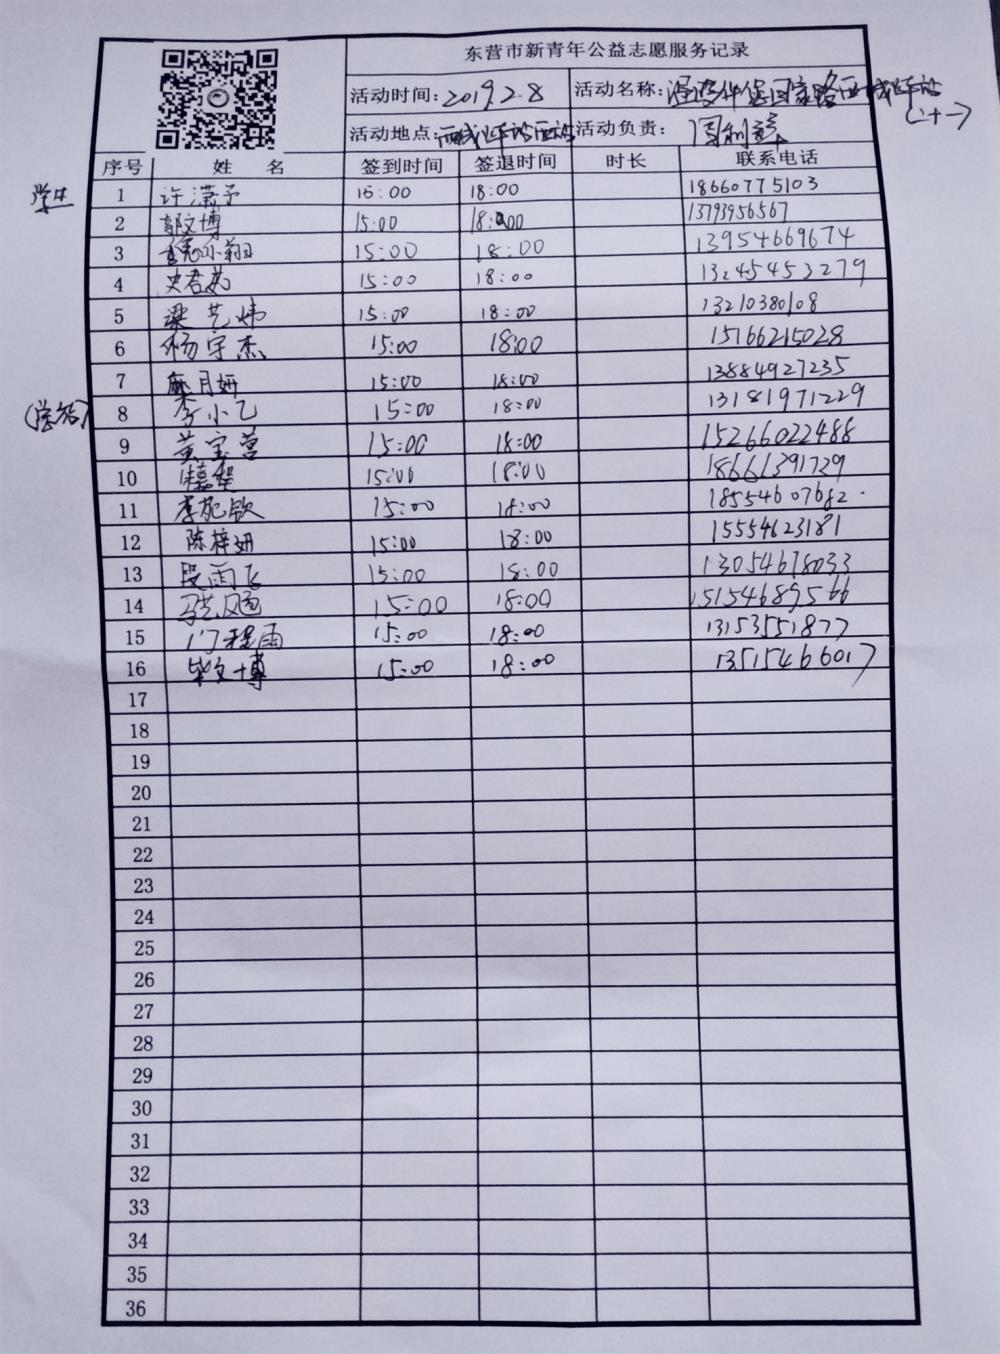 东营市新青年公益志愿服务记录
活动时间:2019.2.8 活动名称:温暖伴您回家路西城汽车站
(二十一)
活动地点:西城汽车站西站 活动负责:
序号 姓 名 签到时间 签退时间 时长 联系电话
学生
1 许潇予 15:00 18:00 18660775103
2 郭文博 15:00 18:00 13793956567
3 15:00 18:00 13954669674
4 史君茹 15:00 18:00 13245453279
5 梁艺炜 15:00 18:00 13210380108
6 杨宇杰 15:00 18:00 15166215028
7 月妍 15:00 18:00 13884927235
8 李小乙 15:00 18:00 13181971229
9 黄宝莹 15:00 18:00 15266022488
10 15:00 18:00 18661391739
11 李苑钦 15:00 18:00 18554607682
12 陈梓妍 15:00 18:00 15554623181
13 段雨飞 15:00 18:00 13054678033
14 15:00 18:00 15154689566
15 门程雨 15:00 18:00 13153551877
16 毕文博 15:00 18:00 13515466017
17
18
19
20
21
22
23
24
25
26
27
28
29
30
31
32
33
34
35
36